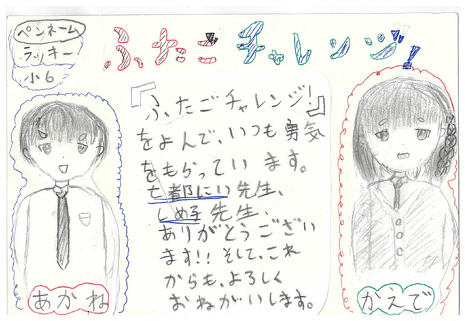 ペンネーム
ラッキー
小6
ふたごチャレンジ!
『ふたごチャレンジ!』
をよんで、いつも勇気
をもらっています。
七都にい先生、
しめ子先生、
ありがとうござい
ます!!そして、これ
からも、よろしく
おねがいします。
あかね
かえで